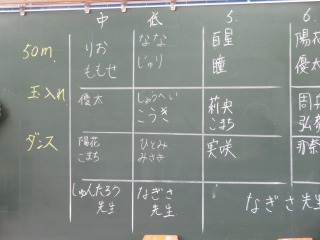 中 低 5. 6.
50m. りお なな 百星 陽花
ももせ じゅり 瞳 優太
玉入れ 優太 しょうへい 莉央 周
こうき こまち 弘
ダンス 陽花 ひとみ 実咲 那奈
こまち みさき
しゅんたろう なぎさ なぎさ先生
先生 先生